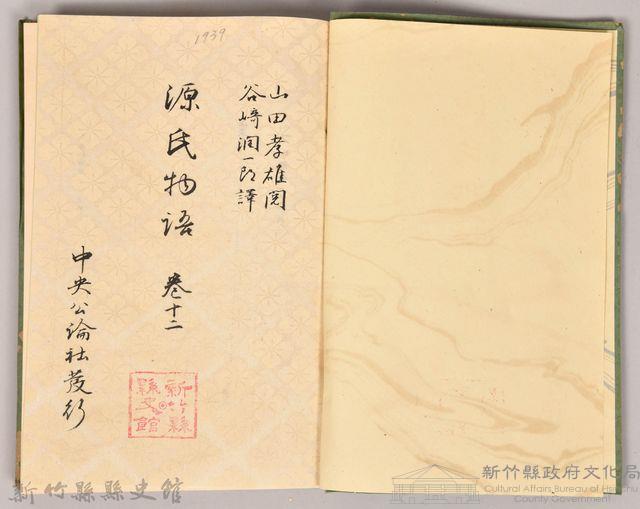 1939
山田孝雄閲
谷崎潤一郎譯
源氏物語 卷十二
中央公論社發行
新竹縣
縣史館
新竹縣縣史館
新竹縣政府文化局
Cultural Affairs Bureau of Hsinchu
County Government